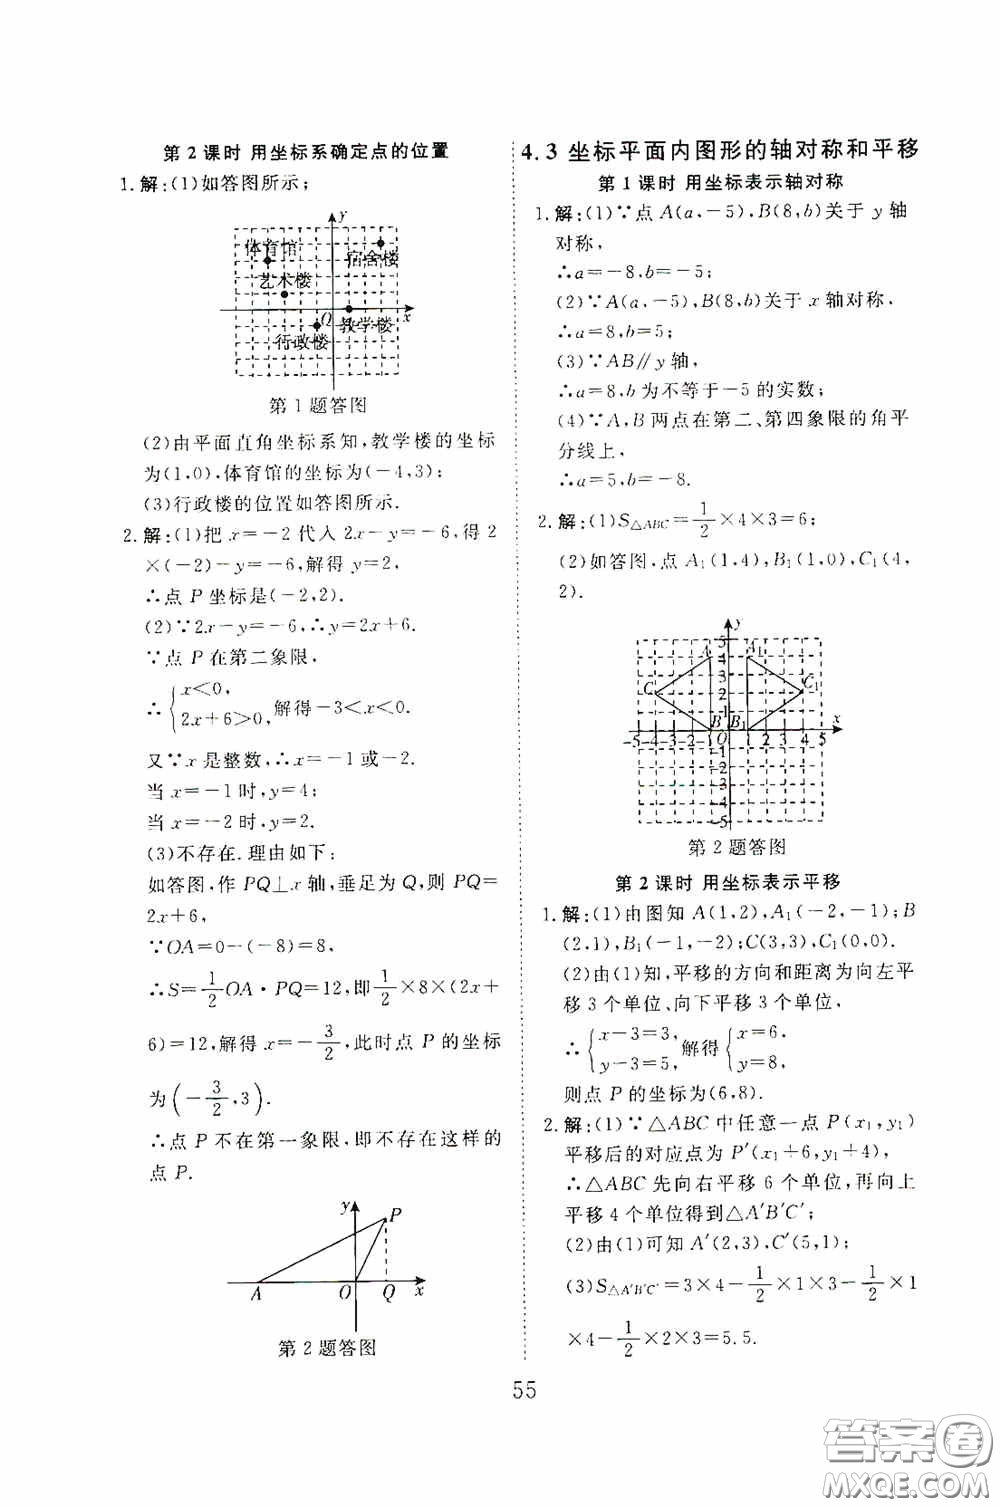 第2课时 用坐标系确定点的位置
1.解:(1)如答图所示;
y
体育馆
宿舍楼
艺术楼
O
x
教学楼
行政楼
第1题答图
(2)由平面直角坐标系知,教学楼的坐标
为(1,0),体育馆的坐标为(-4,3);
(3)行政楼的位置如答图所示.
2.解:(1)把 x=-2 代入 2x-y=-6,得 2
×(-2)-y=-6,解得 y=2,
∴点 P 坐标是(-2,2).
(2)∵2x-y=-6,∴y=2x+6.
∵点 P 在第二象限,
∴{x<0, 2x+6>0,解得-3<x<0.
又∵x 是整数,∴x=-1或-2.
当 x=-1时,y=4;
当 x=-2时,y=2.
(3)不存在.理由如下:
如答图,作 PQ⊥x 轴,垂足为 Q,则 PQ=
2x+6,
∵OA=0-(-8)=8,
∴S=1/2 OA·PQ=12,即 1/2×8×(2x+
6)=12,解得 x=-3/2,此时点 P 的坐标
为(-3/2,3).
∴点 P 不在第一象限,即不存在这样的
点 P.
y
P
A
O
Q
x
第2题答图
4.3 坐标平面内图形的轴对称和平移
第1课时 用坐标表示轴对称
1.解:(1)∵点 A(a,-5),B(8,b)关于 y 轴
对称,
∴a=-8,b=-5;
(2)∵A(a,-5),B(8,b)关于 x 轴对称,
∴a=8,b=5;
(3)∵AB∥y 轴,
∴a=8,b 为不等于-5的实数;
(4)∵A,B 两点在第二、第四象限的角平
分线上,
∴a=5,b=-8.
2.解:(1)S△ABC=1/2×4×3=6;
(2)如答图,点 A1(1,4),B1(1,0),C1(4,
2).
y
5
A 4 A1
3
C 2 C1
1
B B1 x
-5-4-3-2-1 O 1 2 3 4 5
-1
-2
-3
-4
-5
第2题答图
第2课时 用坐标表示平移
1.解:(1)由图知 A(1,2),A1(-2,-1);B
(2,1),B1(-1,-2);C(3,3),C1(0,0).
(2)由(1)知,平移的方向和距离为向左平
移3个单位、向下平移3个单位,
∴{x-3=3, y-3=5,解得{x=6. y=8,
则点 P 的坐标为(6,8).
2.解:(1)∵△ABC 中任意一点 P(x1,y1)
平移后的对应点为 P′(x1+6,y1+4),
∴△ABC 先向右平移 6 个单位,再向上
平移4个单位得到△A′B′C′;
(2)由(1)可知 A′(2,3),C′(5,1);
(3)S△A′B′C′=3×4-1/2×1×3-1/2×1
×4-1/2×2×3=5.5.
55
答案圈
MXQE.COM